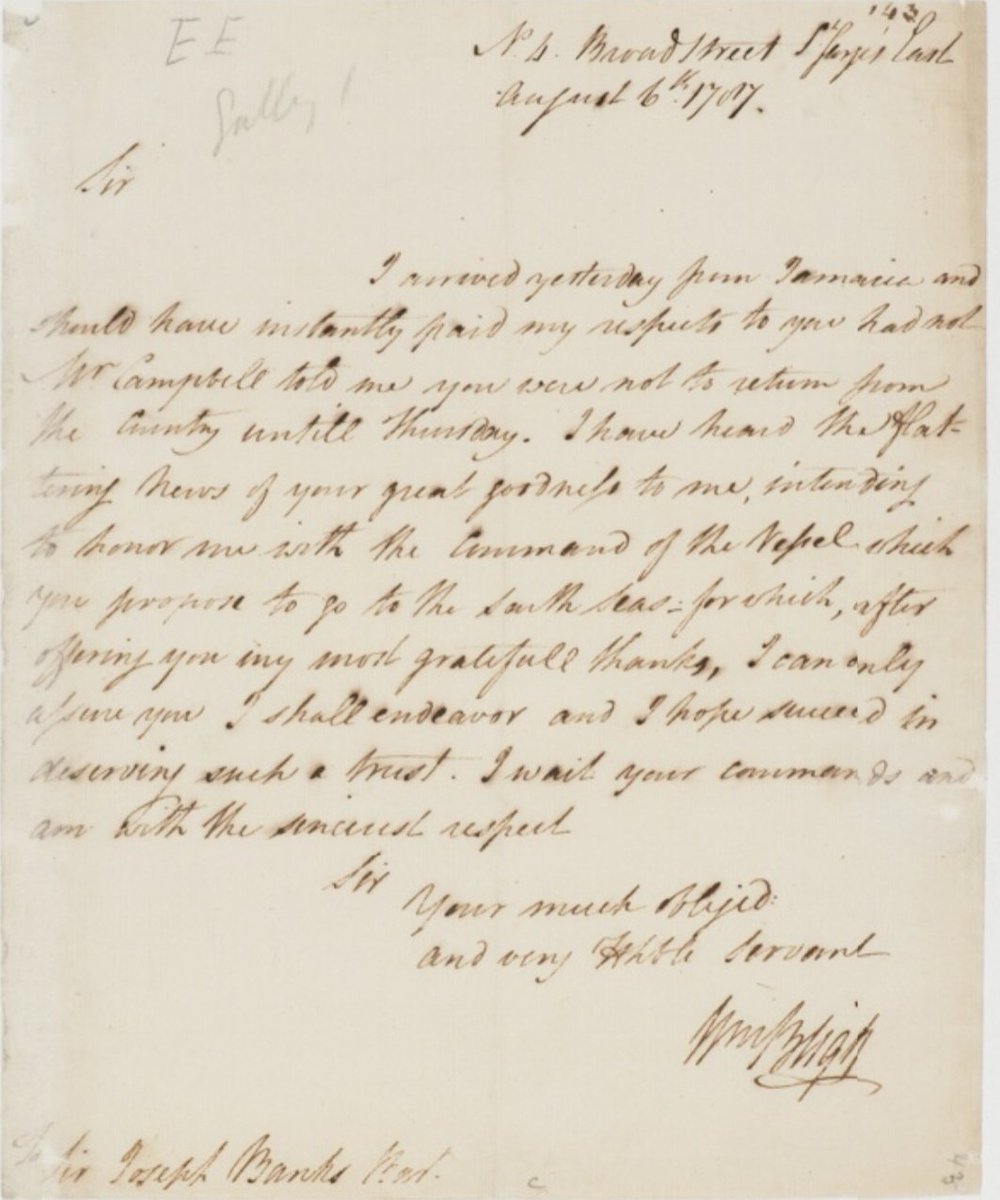 143
E E
No. 4. Broad Street St. George's East
August 6th. 1787.
Sir
I arrived yesterday from Jamaica and
should have instantly paid my respects to you had not
Mr Campbell told me you were not to return from
the Country untill Thursday. I have heard the flat-
tering News of your great goodness to me, intending
to honor me with the Command of the Vessel which
you propose to go to the South Seas: for which, after
offering you my most gratefull thanks, I can only
assure you I shall endeavor and I hope succeed in
deserving such a trust. I wait your commands and
am with the sincerest respect
Sir
Your much obliged:
and very Hble Servant
Wm Bligh
To Sir Joseph Banks Bart.
43